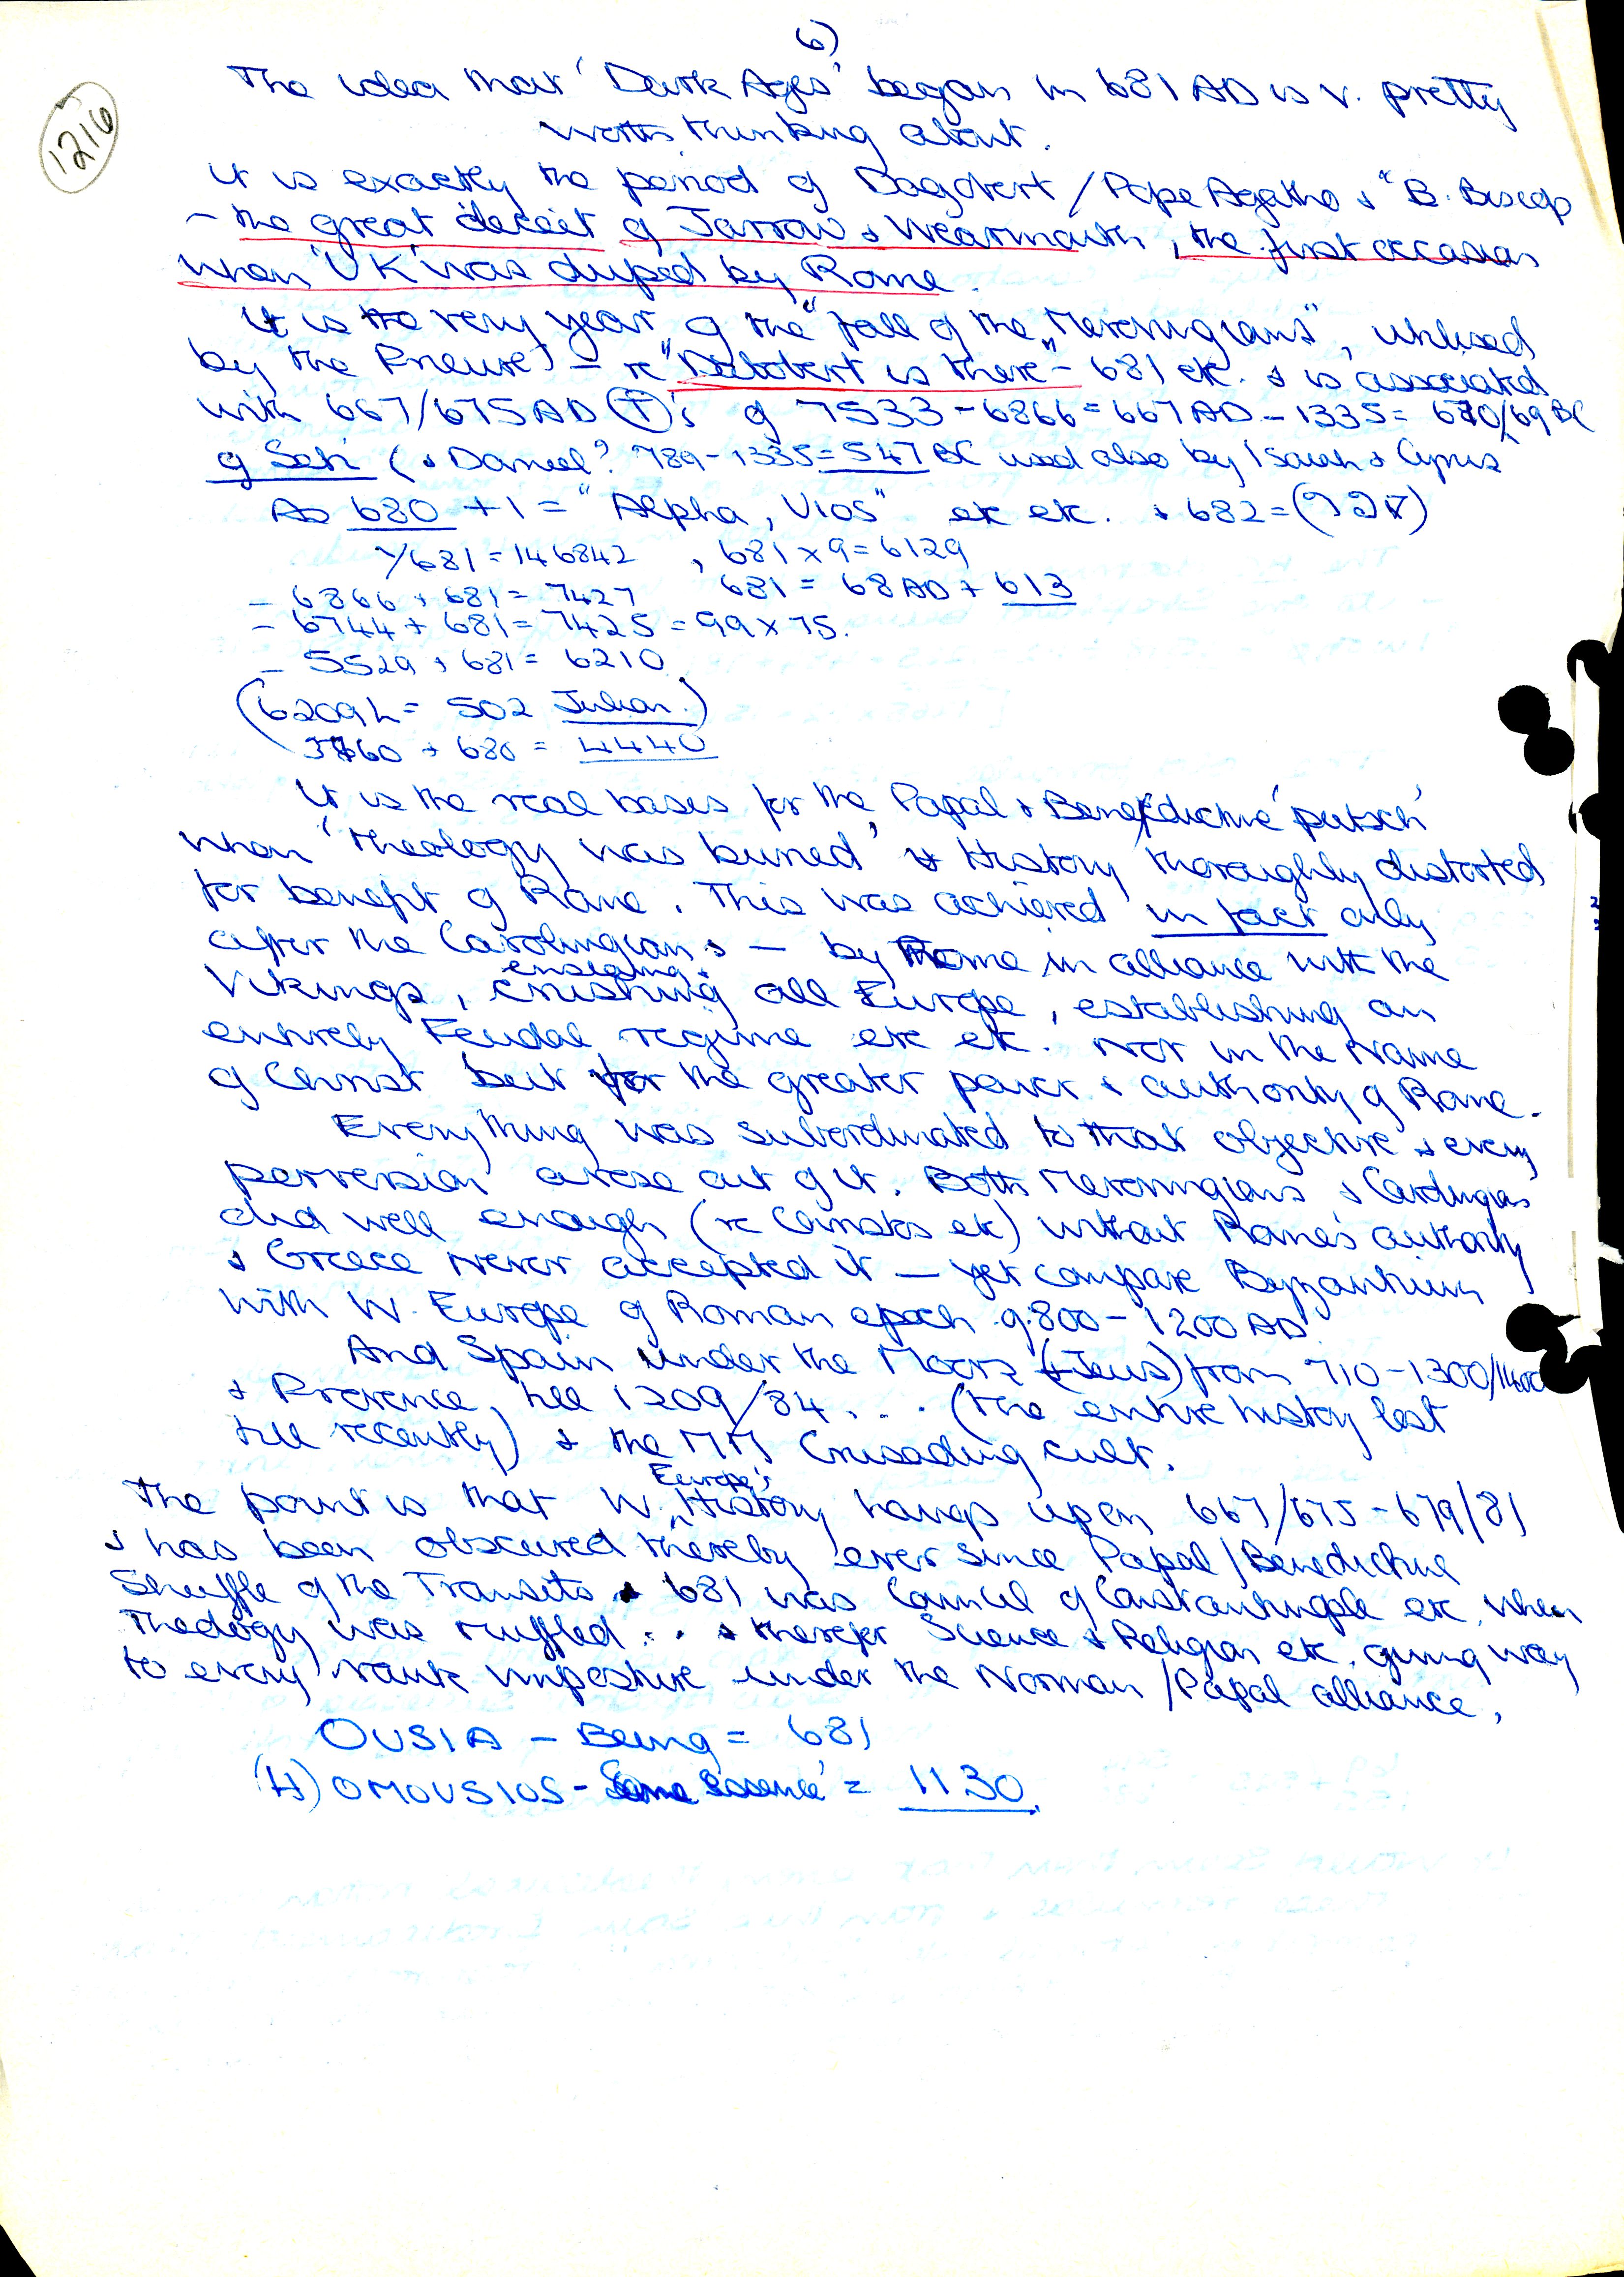 6)
1216
The idea that 'Dark Ages' began in 681 AD is v. pretty
worth thinking about.
It is exactly the period of Dagobert / Pope Agatho & "B. Biscop
– the great deceit of Jarrow & Wearmouth, the first occasion
when 'UK' was duped by Rome.
It is the very year of the "fall of the Merovingians", utilised
by the Prieure) – re "Dagobert is there" – 681 etc. & is associated
with 667/675 AD (T)'s of 7533 – 6866 = 667 AD – 1335 = 670/69 BC
of Seti (& Daniel? 789 – 1335 = 547 BC used also by Isaiah & Cyrus
As 680 + 1 = "Alpha, Vios" etc etc. & 682 =
1/681 = 146842 , 681 x 9 = 6129
– 6866 + 681 = 7427 681 = 68 AD + 613
– 6744 + 681 = 7425 = 99 x 75.
– 5529 + 681 = 6210
(6209 L = 502 Julian.)
3760 + 680 = 4440
It is the real bases for the Papal & Benedictine 'putsch'
when 'theology was buried' & History thoroughly distorted
for benefit of Rome. This was achieved in fact only
after the Carolingians – by Rome in alliance with the
Vikings, crushing all Europe, establishing an
entirely Feudal regime etc etc. Not in the Name
of Christ but for the greater power & authority of Rome.
Everything was subordinated to that objective & every
perversion arose out of it. Both Merovingians & Carolingians
did well enough (re Christos etc) without Rome's authority
& Greece never accepted it – yet compare Byzantium
with W. Europe of Roman epoch of 800 – 1200 AD.
And Spain under the Moors (& Jews) from 710 – 1300/1400
& Provence, till 1209/84 . . . (the entire history lost
till recently) & the MM Crusading cult.
The point is that W. Europe's History hangs upon 667/675 – 679/81
& has been obscured thereby ever since Papal / Benedictine
Shuffle of the Transits & 681 was Council of Constantinople etc, when
Theology was muffled . . & therefor Science & Religion etc. giving way
to every rank imposture under the Norman / Papal alliance,
OUSIA – Being = 681
(H) OMOUSIOS – 'Same Essence' = 1130.